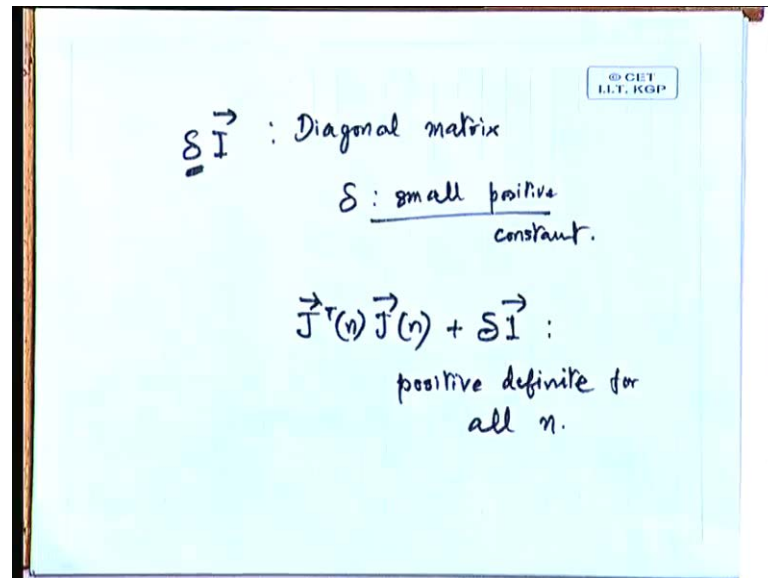 © CET
I.I.T. KGP
δI⃗ : Diagonal matrix
δ : small positive
constant.
J⃗ᵀ(n) J⃗(n) + δI⃗ :
positive definite for
all n.